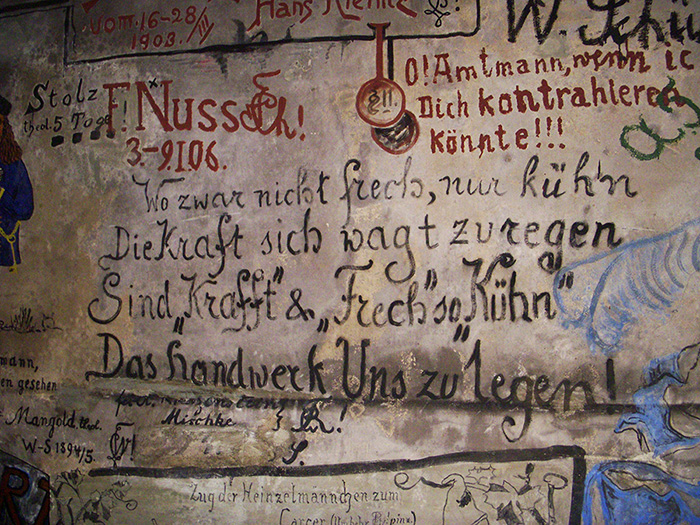 vom 16-28/III
1903.
Hans
W. Schü
O! Amtmann, wenn ic
Dich kontrahieren
könnte!!!
§11.
Stolz
theol. 5 Tage
F! Nuss
3.-9106.
Wo zwar nicht frech, nur kühn
Die Kraft sich wagt zu regen
Sind „Krafft" & „Frech" so „Kühn"
Das Handwerk Uns zu legen!
mann,
en gesehen
Mangold theol.
W-S 1894/5
Mischke
Zug der Heinzelmännchen zum
Carcer